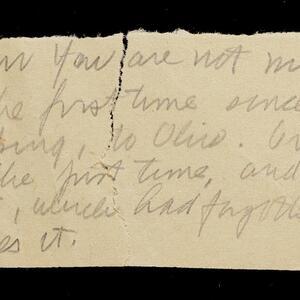 You are not m
the first time since
, to Ohio.
the first time, and
, which had forgott
es it.